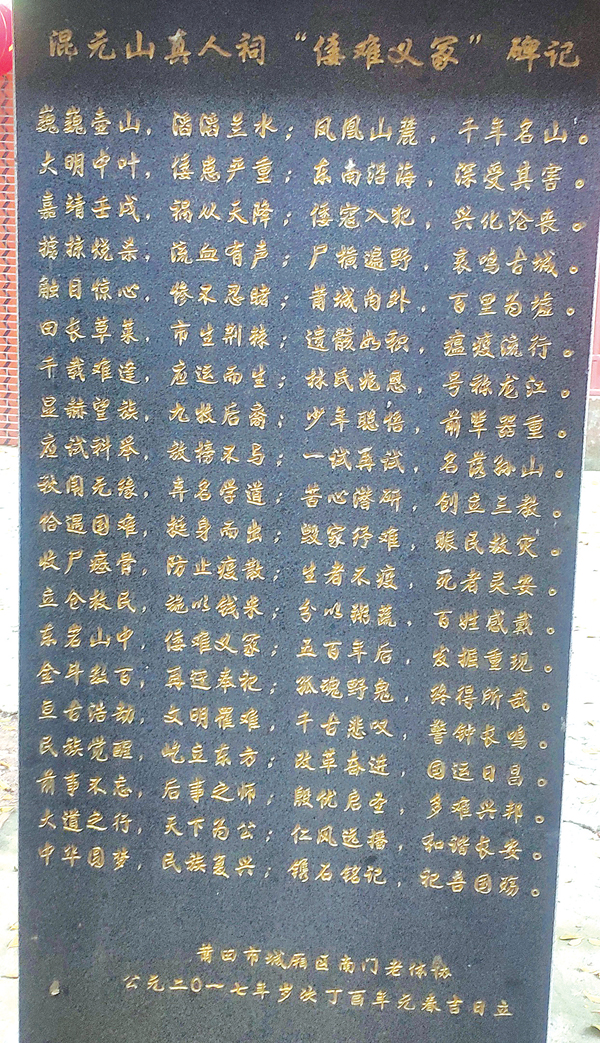 混元山真人祠“倭难义冢”碑记
巍巍壶山，滔滔兰水；凤凰山麓，千年名山。
大明中叶，倭患严重；东南沿海，深受其害。
嘉靖壬戌，祸从天降；倭寇入犯，兴化沦丧。
掳掠烧杀，流血有声；尸横遍野，哀鸣古城。
触目惊心，惨不忍睹；莆城内外，百里为墟。
田长草菜，市生荆棘；遗骸如积，瘟疫流行。
千载难逢，应运而生；林氏兆恩，号称龙江。
显赫望族，九牧后裔；少年聪悟，前辈器重。
应试科举，放榜不与；一试再试，名落孙山。
秋闱无缘，弃名学道；苦心潜研，创立三教。
恰遇国难，挺身而出；毁家纾难，赈民救灾。
收尸瘗骨，防止疫散；生者不疫，死者灵安。
立仓救民，施以钱米；分以粥蔬，百姓感戴。
东岩山中，倭难义冢；五百年后，发掘重现。
金斗数百，再迁奉祀；孤魂野鬼，终得所哉。
亘古浩劫，文明罹难，千古悲叹，警钟长鸣。
民族觉醒，屹立东方；改革奋进，国运日昌。
前事不忘，后事之师；殷忧启圣，多难兴邦。
大道之行，天下为公；仁风远播，和谐长安。
中华圆梦，民族复兴；镌石铭记，祀吾国殇。
莆田市城厢区南门老体协
公元二〇一七年岁次丁酉年元春吉日立